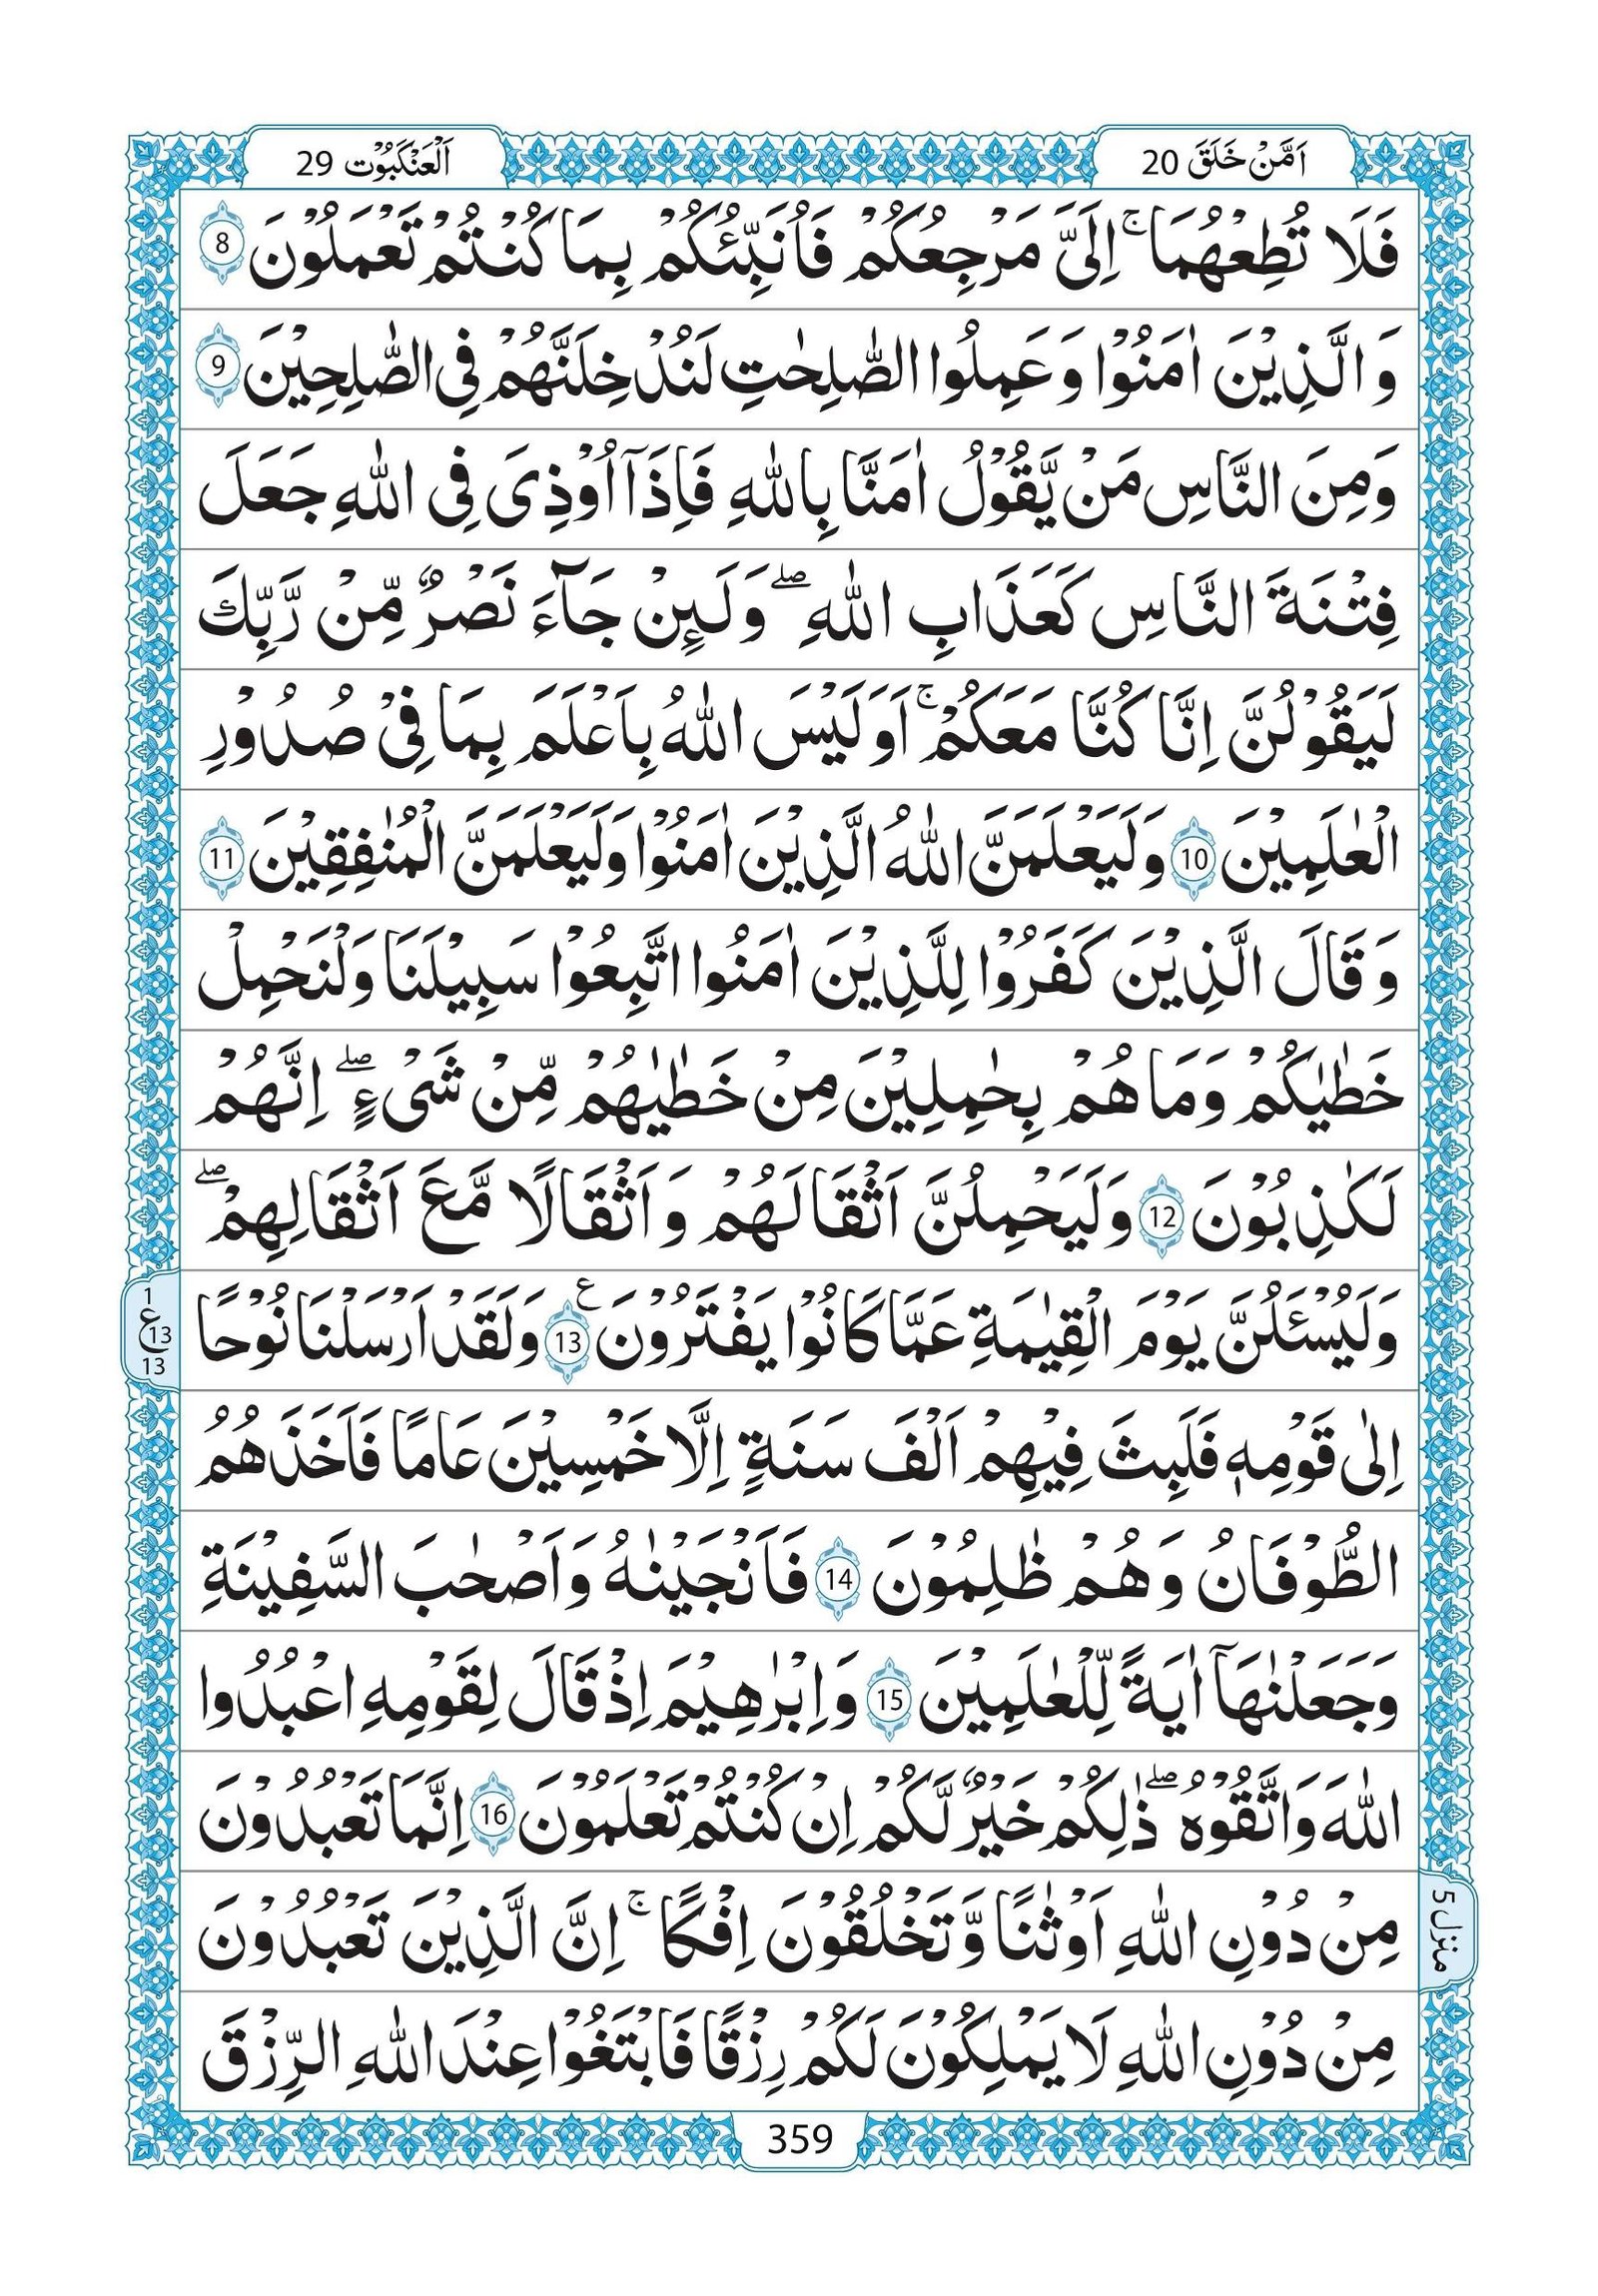 اَمَّنْ خَلَقَ 20
اَلْعَنْكَبُوْت 29
فَلَا تُطِعْهُمَا ۚ اِلَيَّ مَرْجِعُكُمْ فَاُنَبِّئُكُمْ بِمَا كُنْتُمْ تَعْمَلُوْنَ 8
وَ الَّذِيْنَ اٰمَنُوْا وَ عَمِلُوا الصّٰلِحٰتِ لَنُدْخِلَنَّهُمْ فِي الصّٰلِحِيْنَ 9
وَمِنَ النَّاسِ مَنْ يَّقُوْلُ اٰمَنَّا بِاللّٰهِ فَاِذَآ اُوْذِيَ فِي اللّٰهِ جَعَلَ
فِتْنَةَ النَّاسِ كَعَذَابِ اللّٰهِ ۖ وَلَىِٕنْ جَآءَ نَصْرٌ مِّنْ رَّبِّكَ
لَيَقُوْلُنَّ اِنَّا كُنَّا مَعَكُمْ ۚ اَوَلَيْسَ اللّٰهُ بِاَعْلَمَ بِمَا فِيْ صُدُوْرِ
الْعٰلَمِيْنَ 10 وَلَيَعْلَمَنَّ اللّٰهُ الَّذِيْنَ اٰمَنُوْا وَلَيَعْلَمَنَّ الْمُنٰفِقِيْنَ 11
وَقَالَ الَّذِيْنَ كَفَرُوْا لِلَّذِيْنَ اٰمَنُوا اتَّبِعُوْا سَبِيْلَنَا وَلْنَحْمِلْ
خَطٰيٰكُمْ وَمَا هُمْ بِحٰمِلِيْنَ مِنْ خَطٰيٰهُمْ مِّنْ شَيْءٍ ۖ اِنَّهُمْ
لَكٰذِبُوْنَ 12 وَلَيَحْمِلُنَّ اَثْقَالَهُمْ وَاَثْقَالًا مَّعَ اَثْقَالِهِمْ ۖ
وَلَيُسْـَٔلُنَّ يَوْمَ الْقِيٰمَةِ عَمَّا كَانُوْا يَفْتَرُوْنَ ع 13 وَلَقَدْ اَرْسَلْنَا نُوْحًا
1
ع 13
13
اِلٰى قَوْمِهٖ فَلَبِثَ فِيْهِمْ اَلْفَ سَنَةٍ اِلَّا خَمْسِيْنَ عَامًا فَاَخَذَهُمُ
الطُّوْفَانُ وَهُمْ ظٰلِمُوْنَ 14 فَاَنْجَيْنٰهُ وَاَصْحٰبَ السَّفِيْنَةِ
وَجَعَلْنٰهَآ اٰيَةً لِّلْعٰلَمِيْنَ 15 وَاِبْرٰهِيْمَ اِذْ قَالَ لِقَوْمِهِ اعْبُدُوا
اللّٰهَ وَاتَّقُوْهُ ۖ ذٰلِكُمْ خَيْرٌ لَّكُمْ اِنْ كُنْتُمْ تَعْلَمُوْنَ 16 اِنَّمَا تَعْبُدُوْنَ
مِنْ دُوْنِ اللّٰهِ اَوْثٰنًا وَّتَخْلُقُوْنَ اِفْكًا ۚ اِنَّ الَّذِيْنَ تَعْبُدُوْنَ
منزل 5
مِنْ دُوْنِ اللّٰهِ لَا يَمْلِكُوْنَ لَكُمْ رِزْقًا فَابْتَغُوْا عِنْدَ اللّٰهِ الرِّزْقَ
359